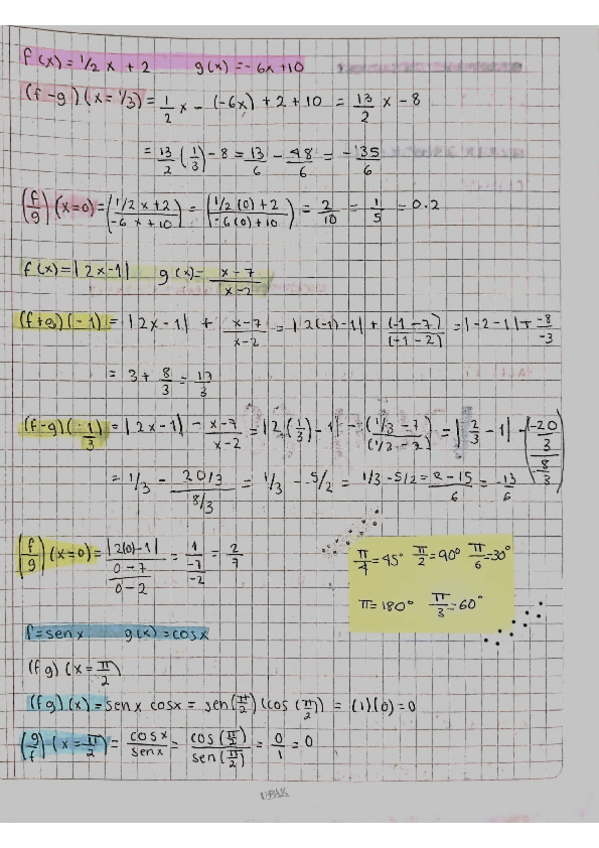 f(x) = 1/2 x + 2 g(x) = -6x+10
(f-g)(x=1/3) = 1/2 x - (-6x) + 2 + 10 = 13/2 x - 8
= 13/2 (1/3) - 8 = 13/6 - 48/6 = -35/6
(f/g)(x=0) = (1/2 x + 2 / -6x + 10) = (1/2 (0) + 2 / -6(0) + 10) = 2/10 = 1/5 = 0.2
f(x) = |2x-1| g(x) = x-7/x-2
(f+g)(-1) = |2x-1| + x-7/x-2 = |2(-1)-1| + (-1-7)/(-1-2) = |-2-1| + -8/-3
= 3 + 8/3 = 17/3
(f-g)(-1/3) = |2x-1| - x-7/x-2 = |2(1/3)-1| - (1/3-7)/(1/3-2) = |2/3 - 1| - (-20/3 / -8/3)
= 1/3 - 20/3 / 8/3 = 1/3 - 5/2 = 1/3 - 5/2 = 2-15/6 = -13/6
(f/g)(x=0) = |2(0)-1| / 0-7/0-2 = 1 / -7/-2 = 2/7
π/4 = 45° π/2 = 90° π/6 = 30°
π = 180° π/3 = 60°
f = sen x g(x) = cos x
(f g)(x = π/2)
(f g)(x) = sen x cos x = sen(π/2)(cos(π/2)) = (1)(0) = 0
(g/f)(x = π/2) = cos x/sen x = cos(π/2)/sen(π/2) = 0/1 = 0